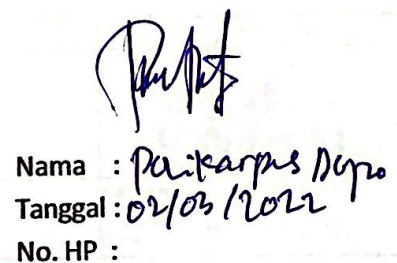 Nama : Polikarpus Dopo
Tanggal : 02/03/2022
No. HP :